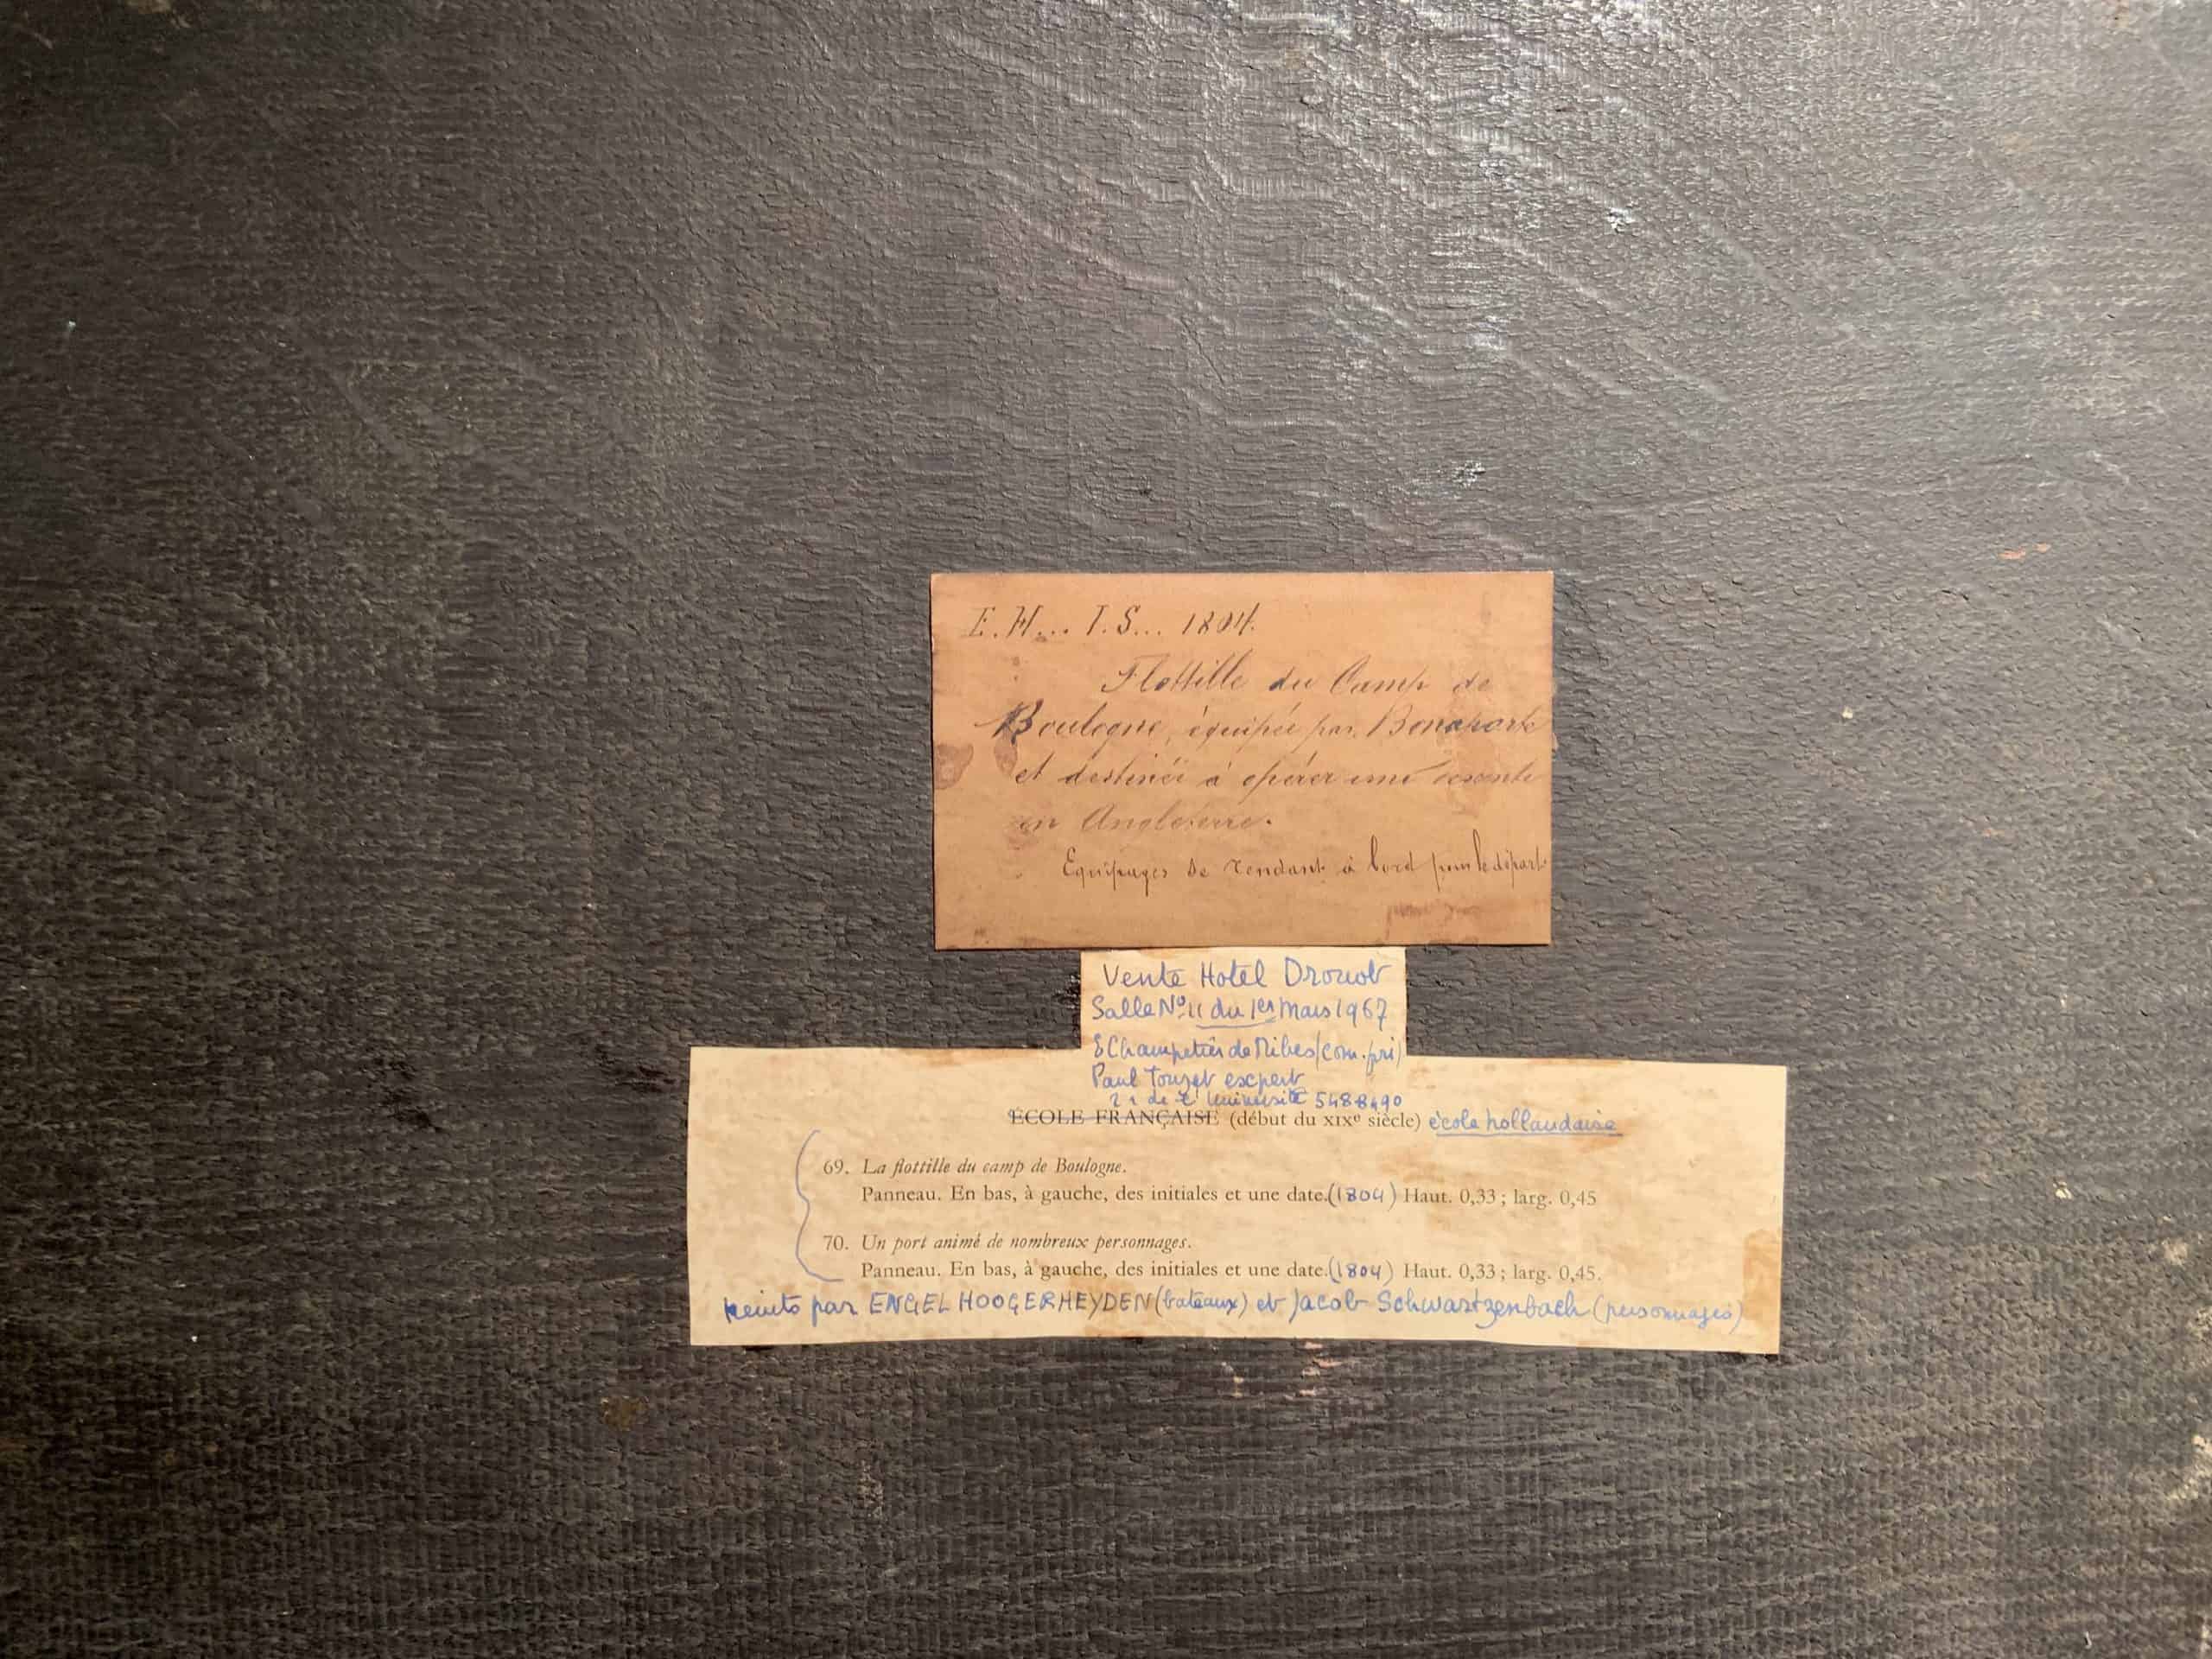 E. H... I. S... 1804.
Flottille du Camp de
Boulogne, équipée par Bonaparte
et destinée à opérer une descente
en Angleterre.
Equipages se rendant à bord pour le départ
Vente Hotel Drouot
Salle No 11 du 1er Mars 1967
E Champetier de Ribes (Com. pri)
Paul Touzet expert
de l'Université 5488490
ÉCOLE FRANÇAISE (début du XIXe siècle) école hollandaise
69. La flottille du camp de Boulogne.
Panneau. En bas, à gauche, des initiales et une date. (1804) Haut. 0,33 ; larg. 0,45
70. Un port animé de nombreux personnages.
Panneau. En bas, à gauche, des initiales et une date. (1804) Haut. 0,33 ; larg. 0,45.
peints par ENGEL HOOGERHEYDEN (bateaux) et Jacob Schwartzenbach (personnages)